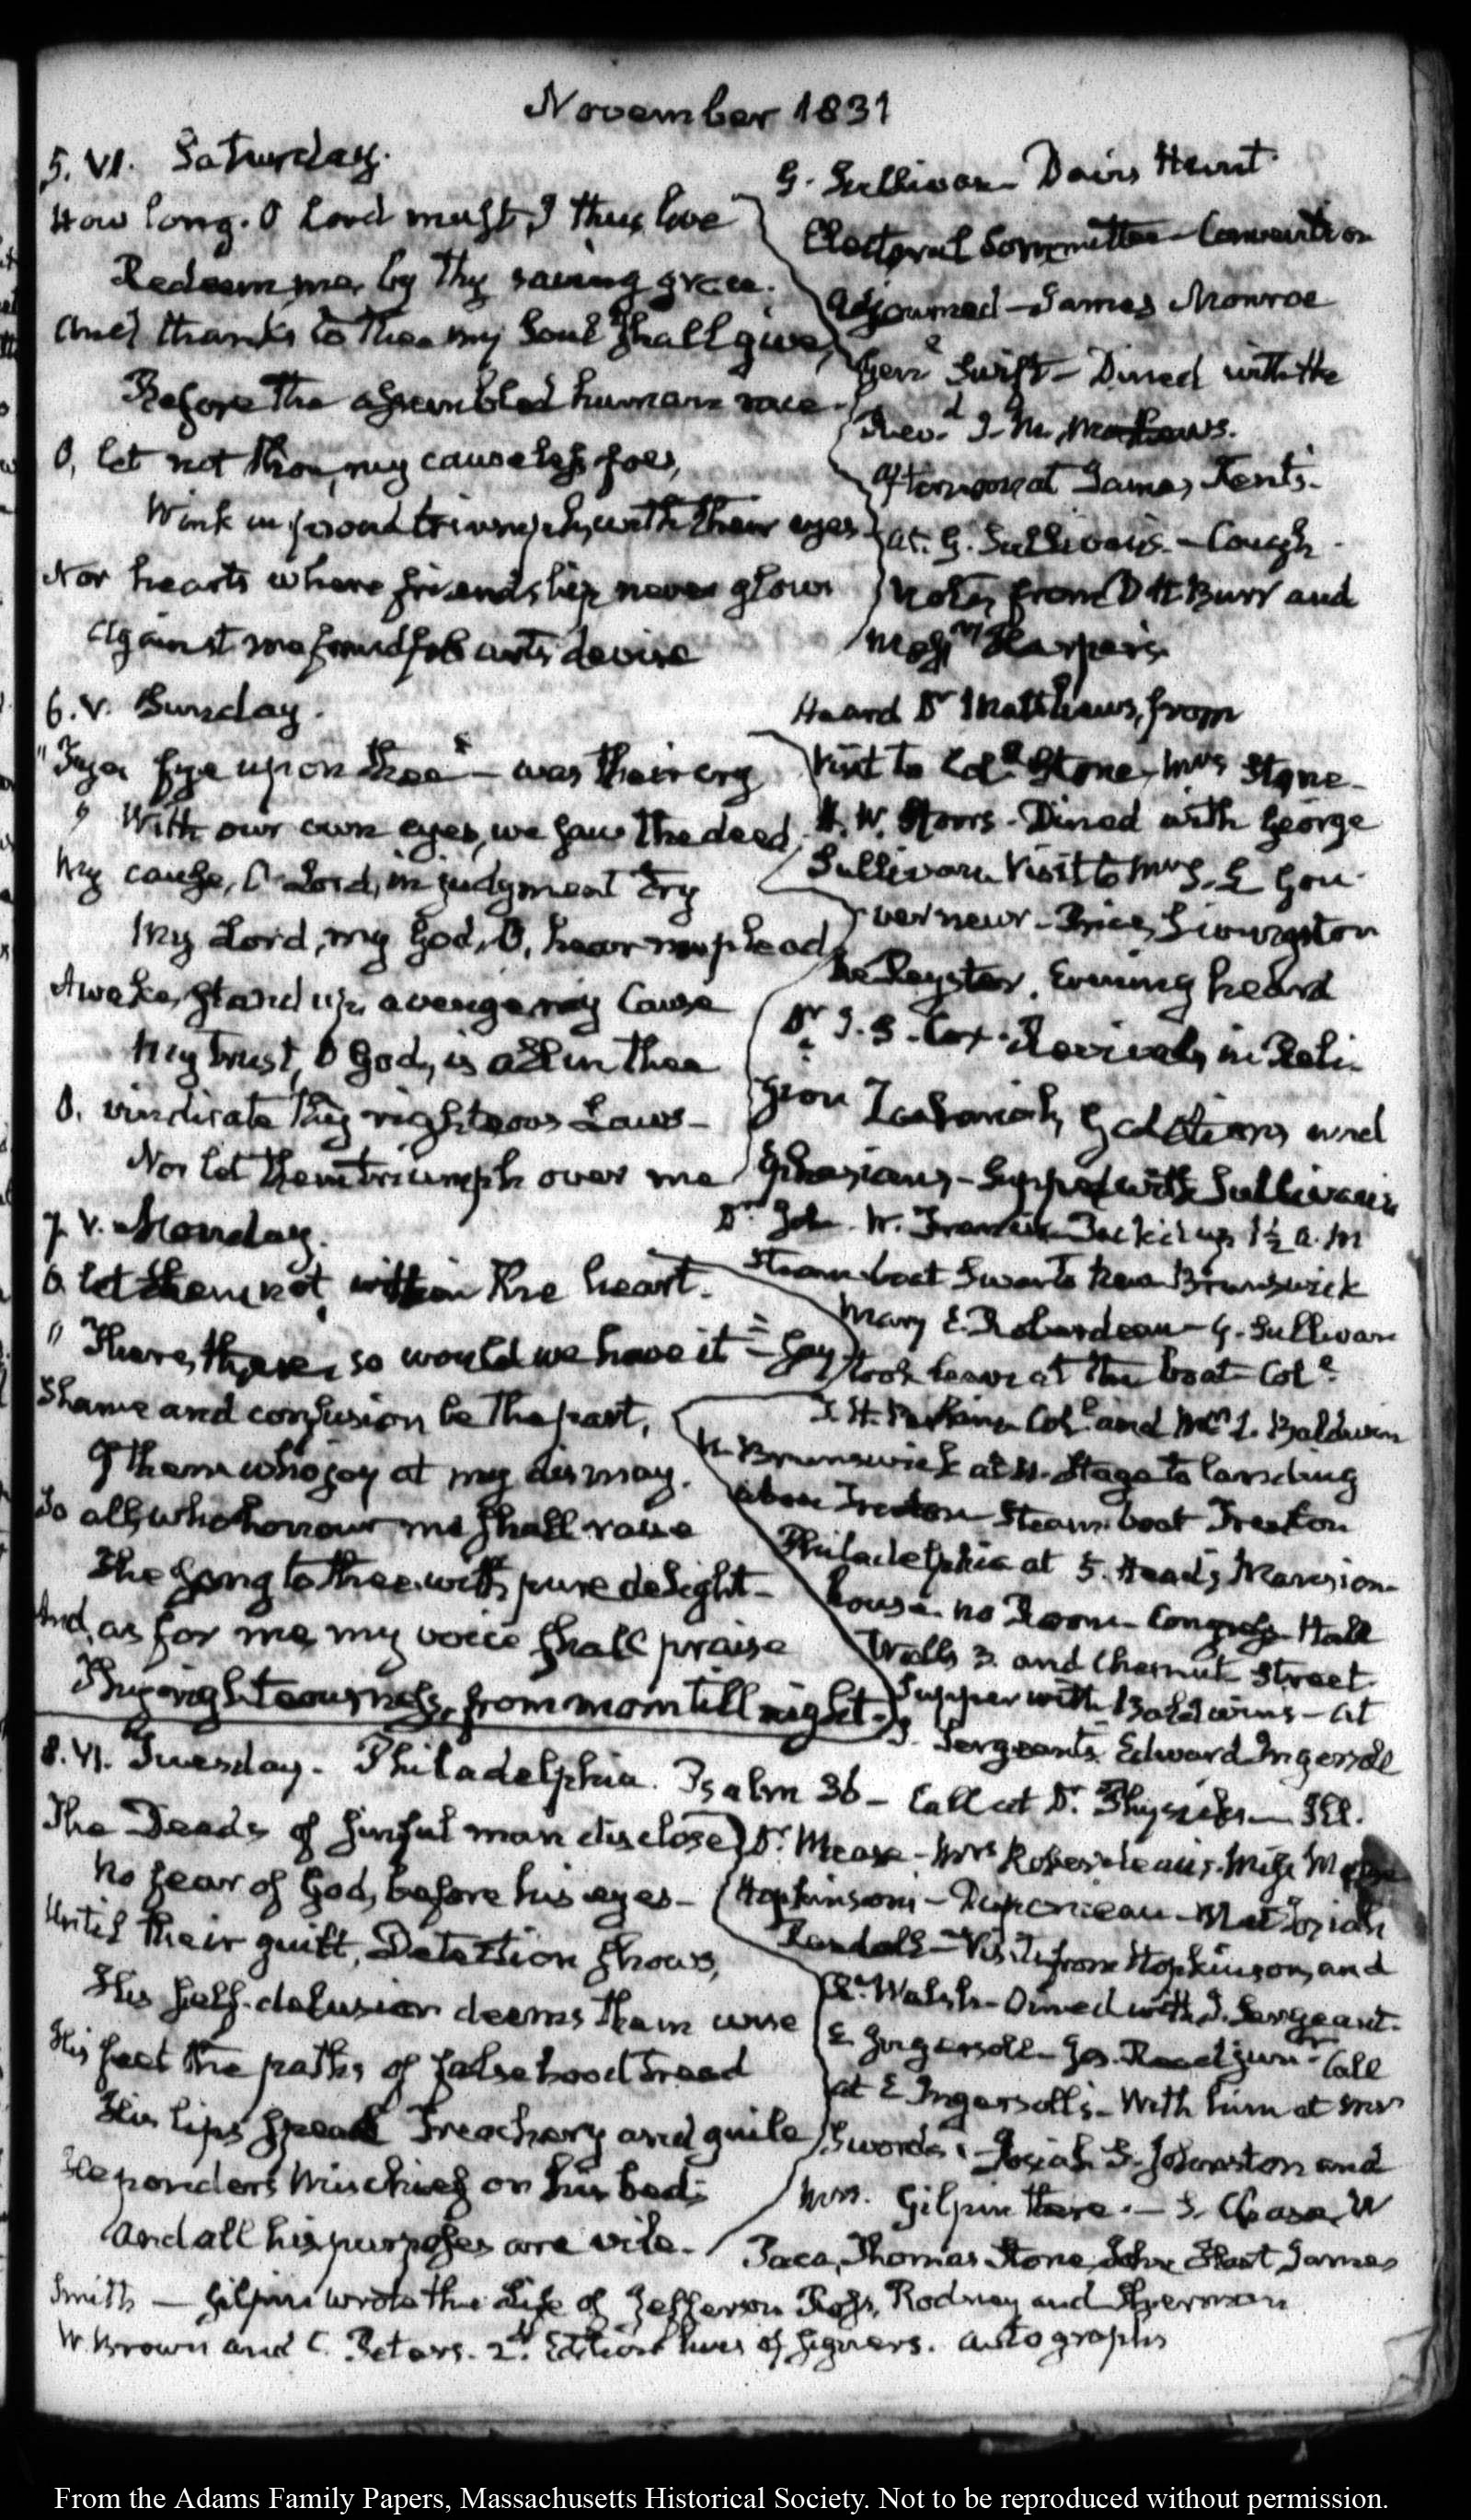 November 1831
5. VI. Saturday.
How long. O Lord must I thus live
Redeem me, by thy saving grace.
And thanks to Thee my Soul shall give,
Before the assembled human race.
O, let not thou, my causeless foes,
Wink in proud triumph, with their eyes
Nor hearts where friendship never glows
Against me fraudful arts devise
G. Sullivan - Davis Hunt
Electoral Committee - Convention
adjourned - James Monroe
Genl Swift - Dined with the
Revd J. M. Mathews.
Afternoon at James Kent's.
at G. Sullivan's. - Cough
Notes from D H Burr and
Messrs Harpers
6. V. Sunday.
"Fye, fye upon thee" - was their cry
" With our own eyes, we saw the deed
My cause, O Lord, in judgment try
My Lord, my God, O, hear me plead
Awake, stand up, avenge my Cause
My trust, O God, is all in thee
O. vindicate thy righteous Laws -
Nor let them triumph over me
Heard Dr Matthews, from
Visit to Coll Stone, Mrs Stone -
H. W. Storrs - Dined with George
Sullivan Visit to Mrs S. L Gou-
verneur - Price, Livingston
De Reyster. Evening heard
Dr. S. S. Cox. Revivals in Reli-
gion Zechariah, Galatians and
Ephesians - Supped with Sullivan
7. V. Monday.
O. let them not, within the heart.
"There, there, so would we have it" = Say
Shame and confusion be the part,
Of them who joy at my dismay.
So all, who honour me shall raise
The song to thee with pure delight -
And, as for me, my voice shall praise
Thy righteousness, from morn till night -
Dr John W. Francis Packed up 1½ a.m
Steam boat Swan to New Brunswick
Mary E. Roberdeau - G. Sullivan
took leave at the boat - Coll
T. H. Perkins Coll and Mrs L. Baldwin
N. Brunswick at 11. Stage to landing
above Trenton Steam boat Trenton
Philadelphia at 5. Head's Mansion-
house. no Room - Congress Hall
Wells 3. and Chesnut Street.
Supper with Baldwins - at
J. Sergeants. Edward Ingersoll
8. VI. Tuesday. Philadelphia. Psalm 36 - Call at Dr. Physick's - Ill.
The Deeds of sinful man disclose
No fear of God, before his eyes -
Until their guilt, Detection shows,
His self-delusion deems them wise
His feet the paths of falsehood tread
His lips speak Treachery and guile
He ponders Mischief on his bed;
And all his purposes are vile.
Dr. Mease - Mrs Roberdeau's. Miss
Hopkinson's - Duponceau - Met Josiah
Randall - Visits from Hopkinson, and
R. Walsh - Dined with J. Sergeant.
E Ingersoll - Jos. Reed junr - Call
at E Ingersoll's - With him at Mrs
Swords - Josiah S. Johnston and
Mrs. Gilpin there. - S. Chase, W
Paca, Thomas Stone, John Hart, James
Smith - Gilpin wrote the Life of Jefferson Ross, Rodney and Sherman
W. Brown and C. Peters. 2d. Edition lives of signers. Autographs
From the Adams Family Papers, Massachusetts Historical Society. Not to be reproduced without permission.